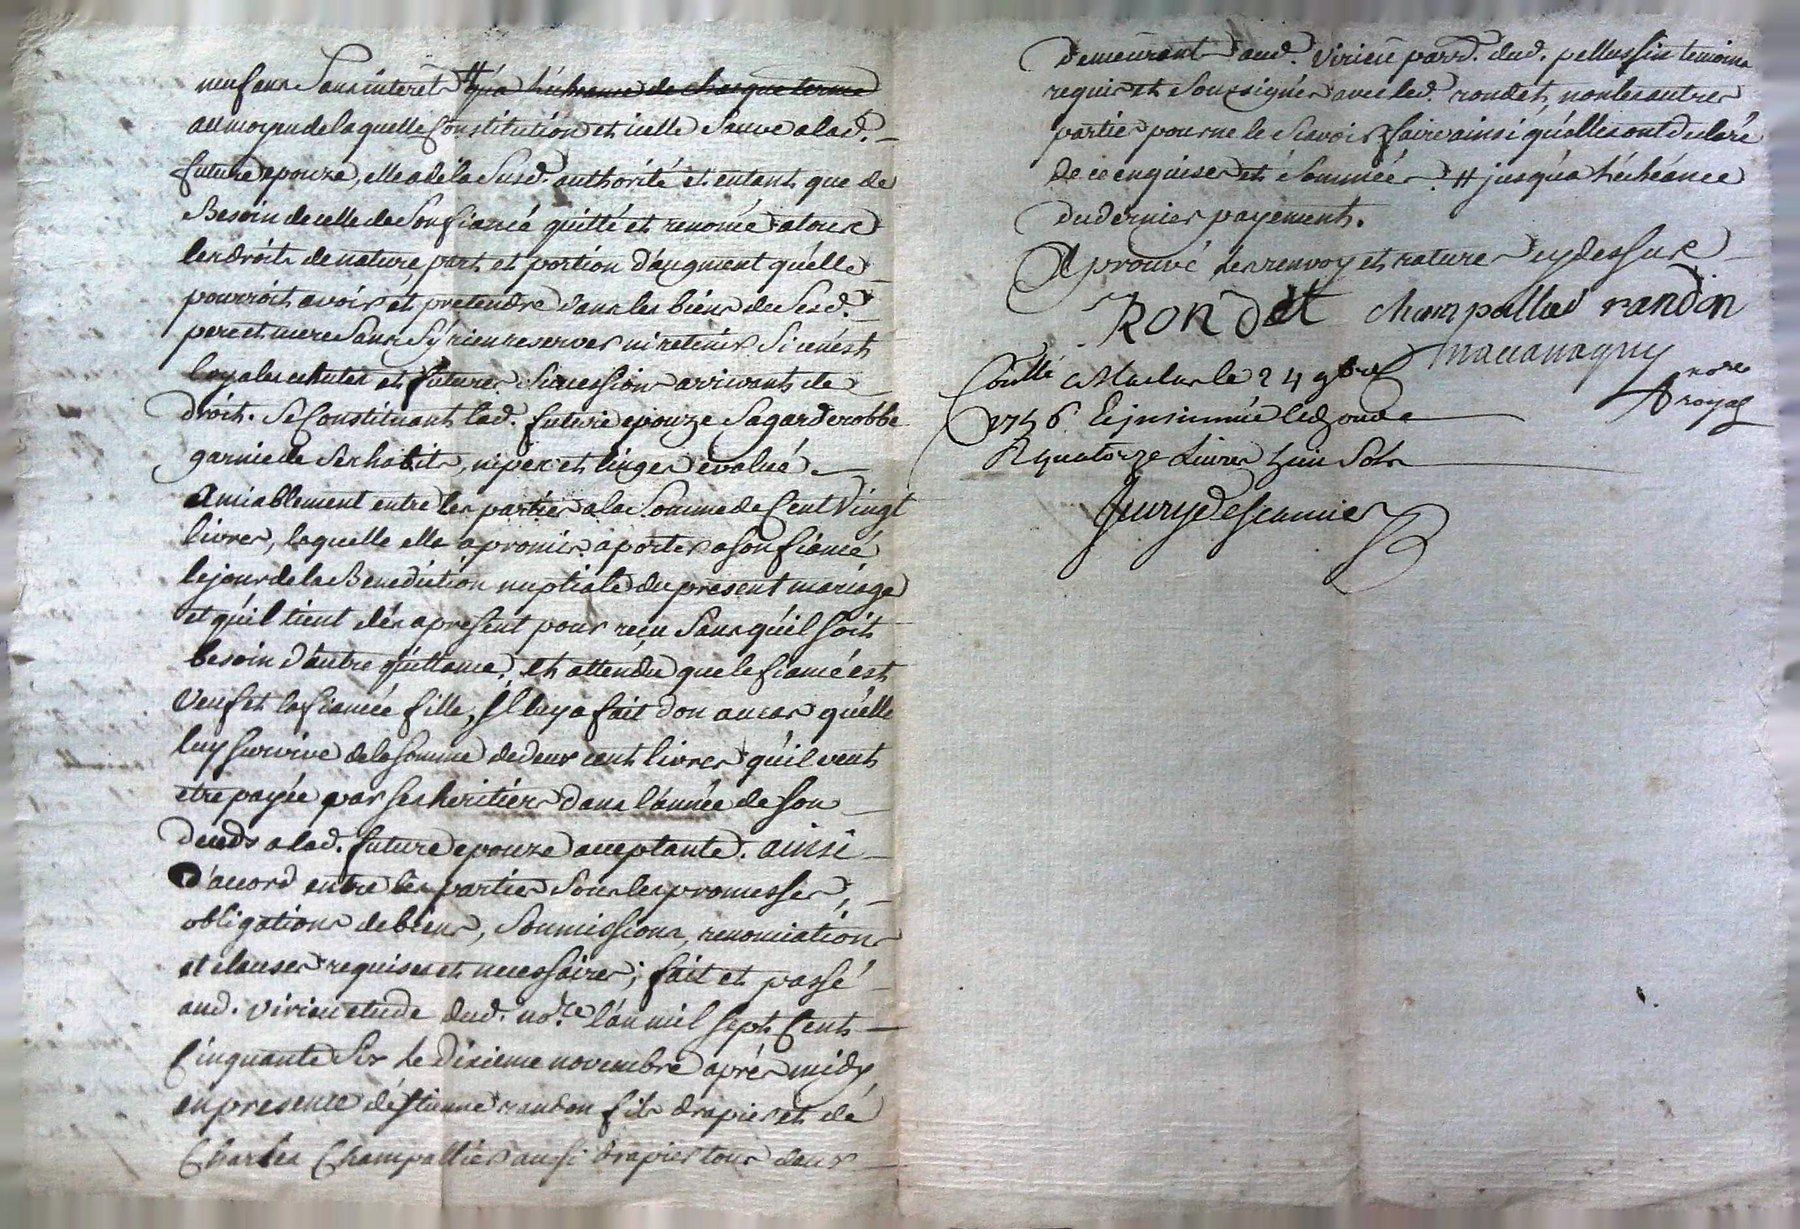 neuf ans sans interet # qu'a l'echeance de chaque terme
au moyen de laquelle Constitution et icelle Sauve a lad.
future epouze, elle a de la Susd. authorité et entant que de
Besoin de celle de Son fiancé quitté et renoncé a tous
les droits de nature part et portion d'augment qu'elle
pourroit avoir et pretendre dans les biens de Sesd.
pere et mere Sans S'y rien reserver ni retenir Si ce n'est
loyales echutes et futures Sucession arrivants de
droit. Se Constituant lad. future epouze Sa garderobbe
garnie de Ses habits, nipes et linges evalué
amiablement entre les parties a la Somme de Cent Vingt
livres, laquelle elle a promis aporter a son fiancé
le jour de la Benediction nuptiale du present mariage
et qu'il tient dés apresent pour reçu Sans qu'il soit
besoin d'autre quittance. et attendu que le fiancé est
Veuf et la fiancée fille, Il luy a fait don au cas qu'elle
luy survive de la Somme de deux cent livres qu'il veut
etre payée par ses heritiers dans l'année de son
deceds a lad. future epouze acceptante. ainsi
D'accord entre les parties Sous les promesses,
obligations de biens, Soumissions, renonciations
et clauses requises et necessaires; fait et passé
aud. Virieu etude dud. no.re l'an mil sept Cents
Cinquante Six le dixieme novembre aprés midy
en presence d'éstienne randon fils drapier et de
Charles Champallier aussi drapier tous deux
Demeurant aud. Virieu parr. dud. pellussin temoins
requis et Soussignés avec led. rondet, non les autres
parties pour ne le Scavoir faire ainsi qu'elles ont declaré
de ce enquises et Sommées. # jusqu'a l'echéance
du dernier payement.
Aprouvé les renvoy et rature cy dessus
RONDET champallié randon
no.re
royal
Conllé a Maclas le 24 9bre
1756. et insinué led jour
R quatorze Livres huit Sols